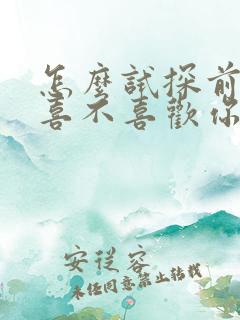 怎麼試探前
喜不喜歡你
安從容
未經同意禁止轉載